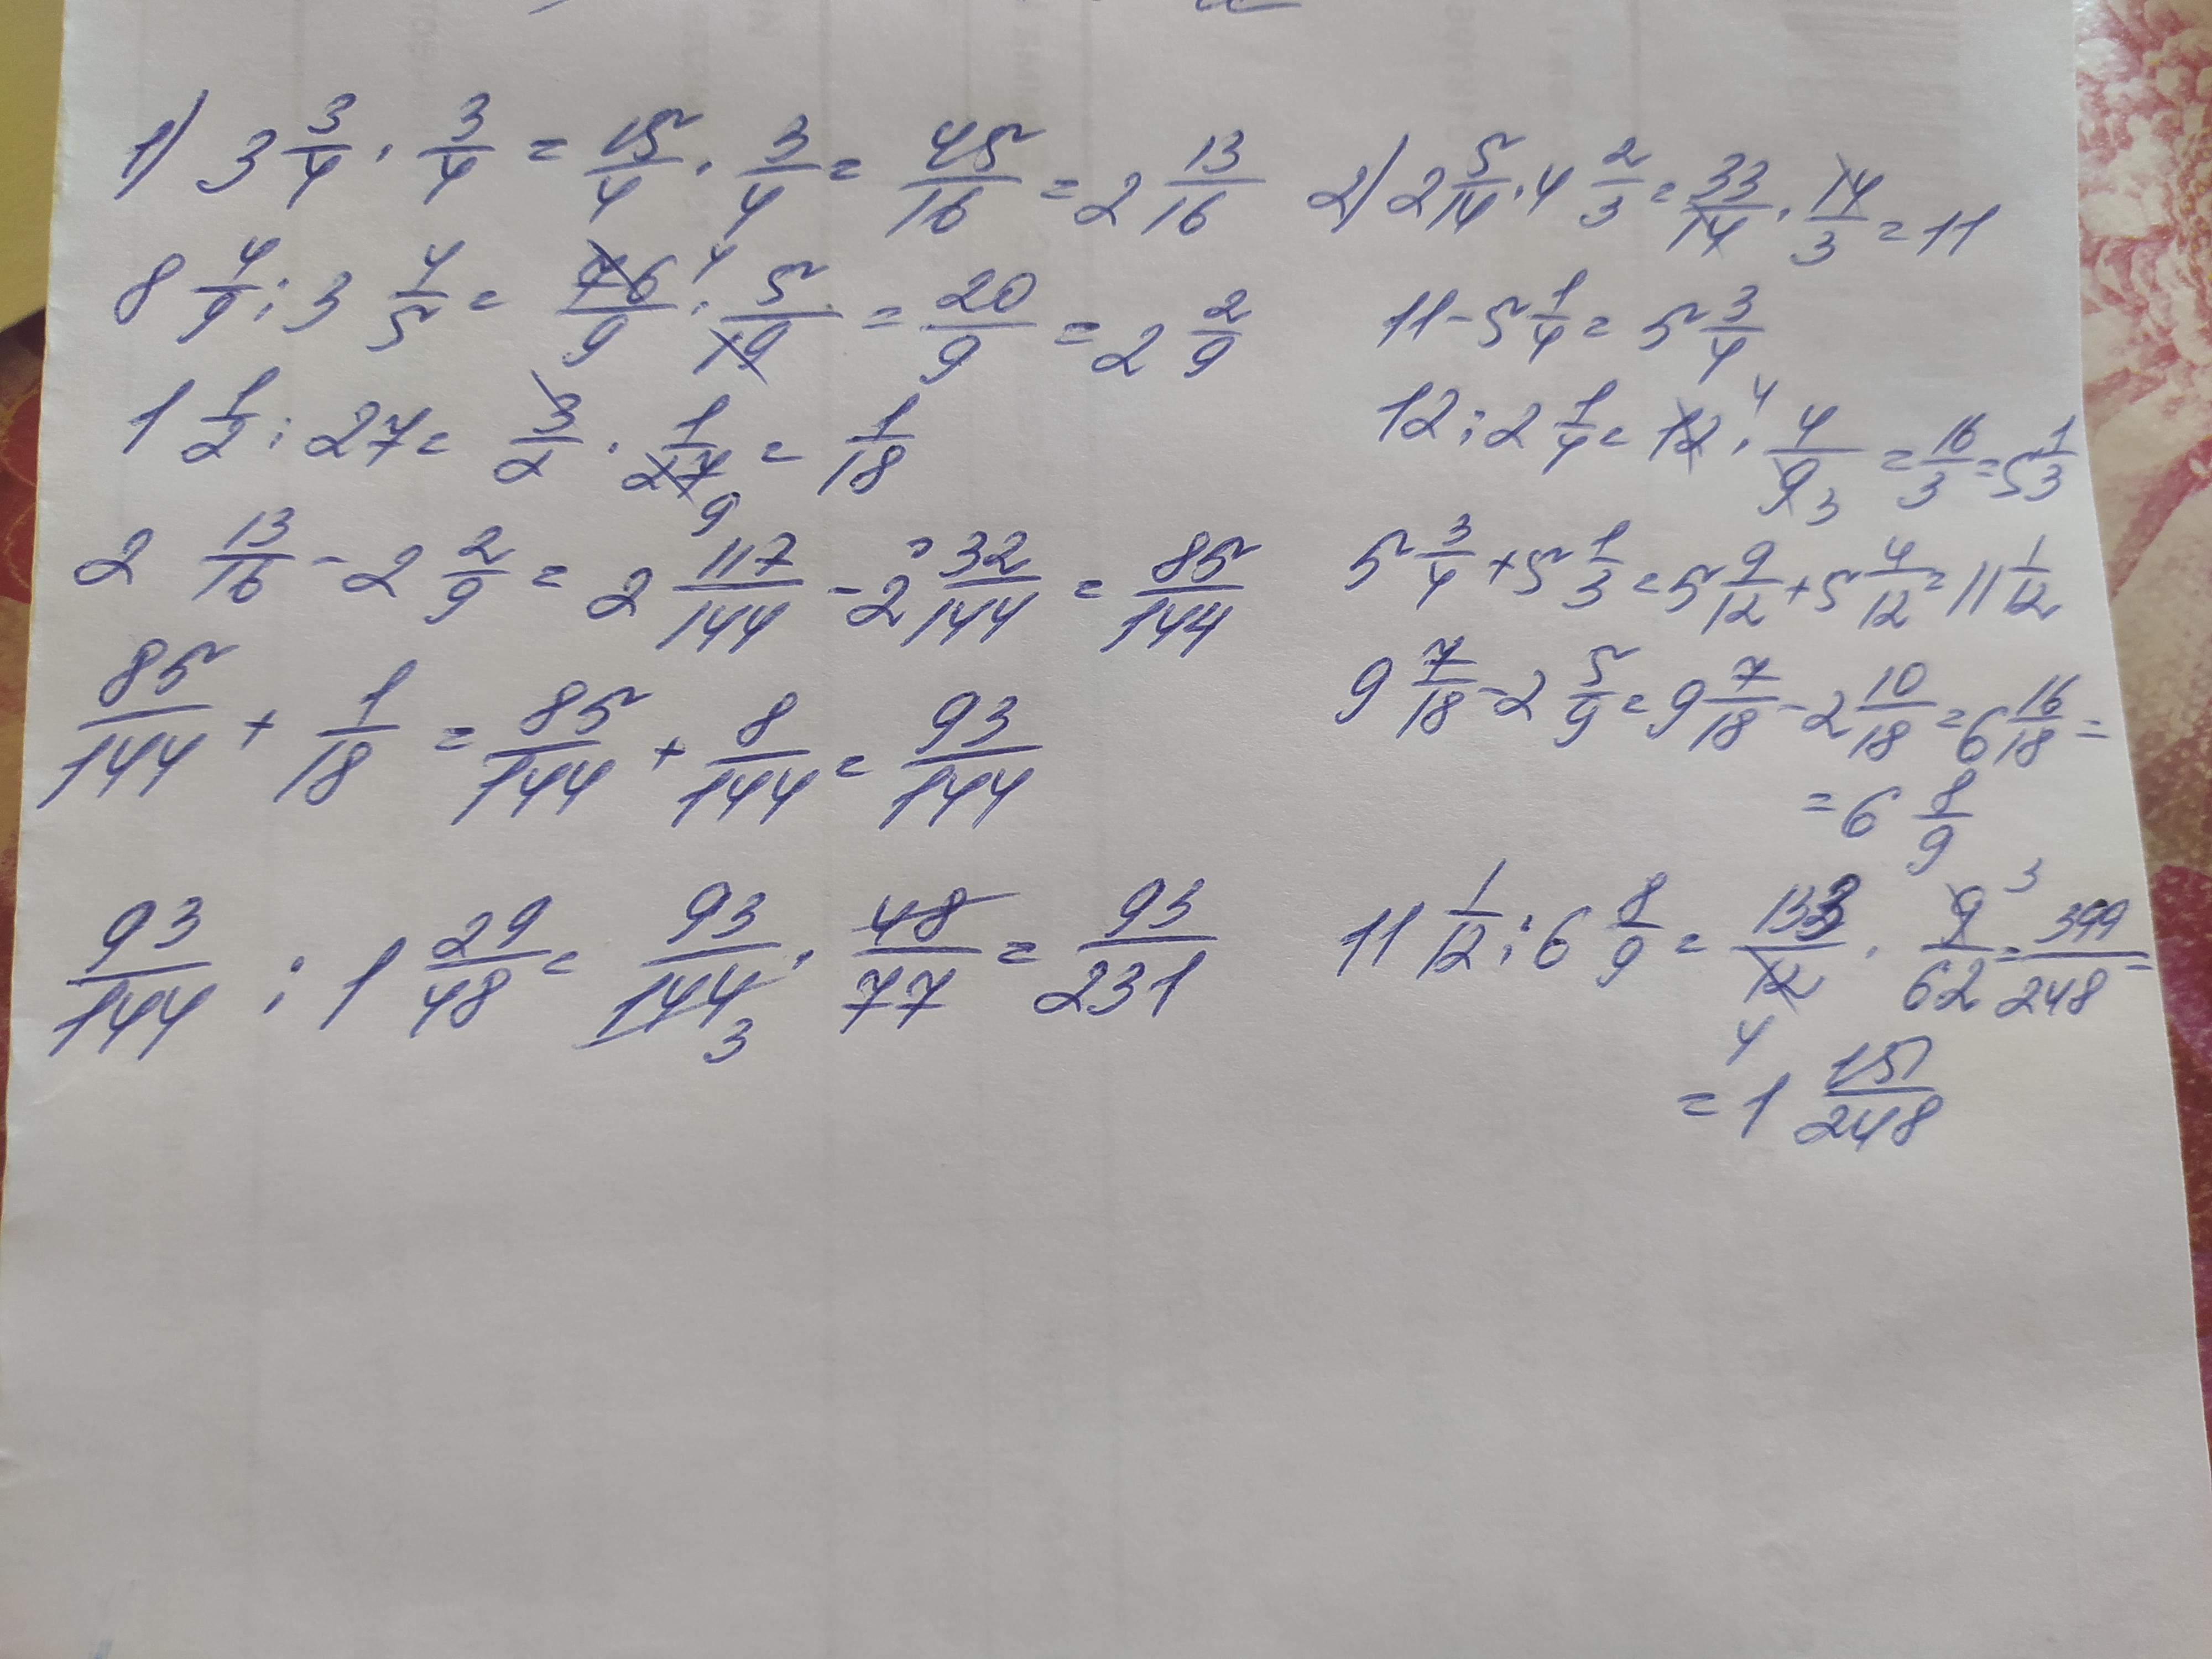 1) 3 3/4 · 3/4 = 15/4 · 3/4 = 45/16 = 2 13/16
8 4/9 : 3 4/5 = 76/9 4 · 5/19 = 20/9 = 2 2/9
1 1/2 : 27 = 3/2 · 1/27 9 = 1/18
2 13/16 - 2 2/9 = 2 117/144 - 2 32/144 = 85/144
85/144 + 1/18 = 85/144 + 8/144 = 93/144
93/144 : 1 29/48 = 93/144 3 · 48/77 = 93/231
2) 2 5/14 · 4 2/3 = 33/14 · 14/3 = 11
11 - 5 1/4 = 5 3/4
12 : 2 1/4 = 12 4 · 4/9 3 = 16/3 = 5 1/3
5 3/4 + 5 1/3 = 5 9/12 + 5 4/12 = 11 1/12
9 7/18 - 2 5/9 = 9 7/18 - 2 10/18 = 6 16/18 =
= 6 8/9
11 1/12 : 6 8/9 = 133/12 4 · 9 3/62 = 399/248 =
= 1 151/248